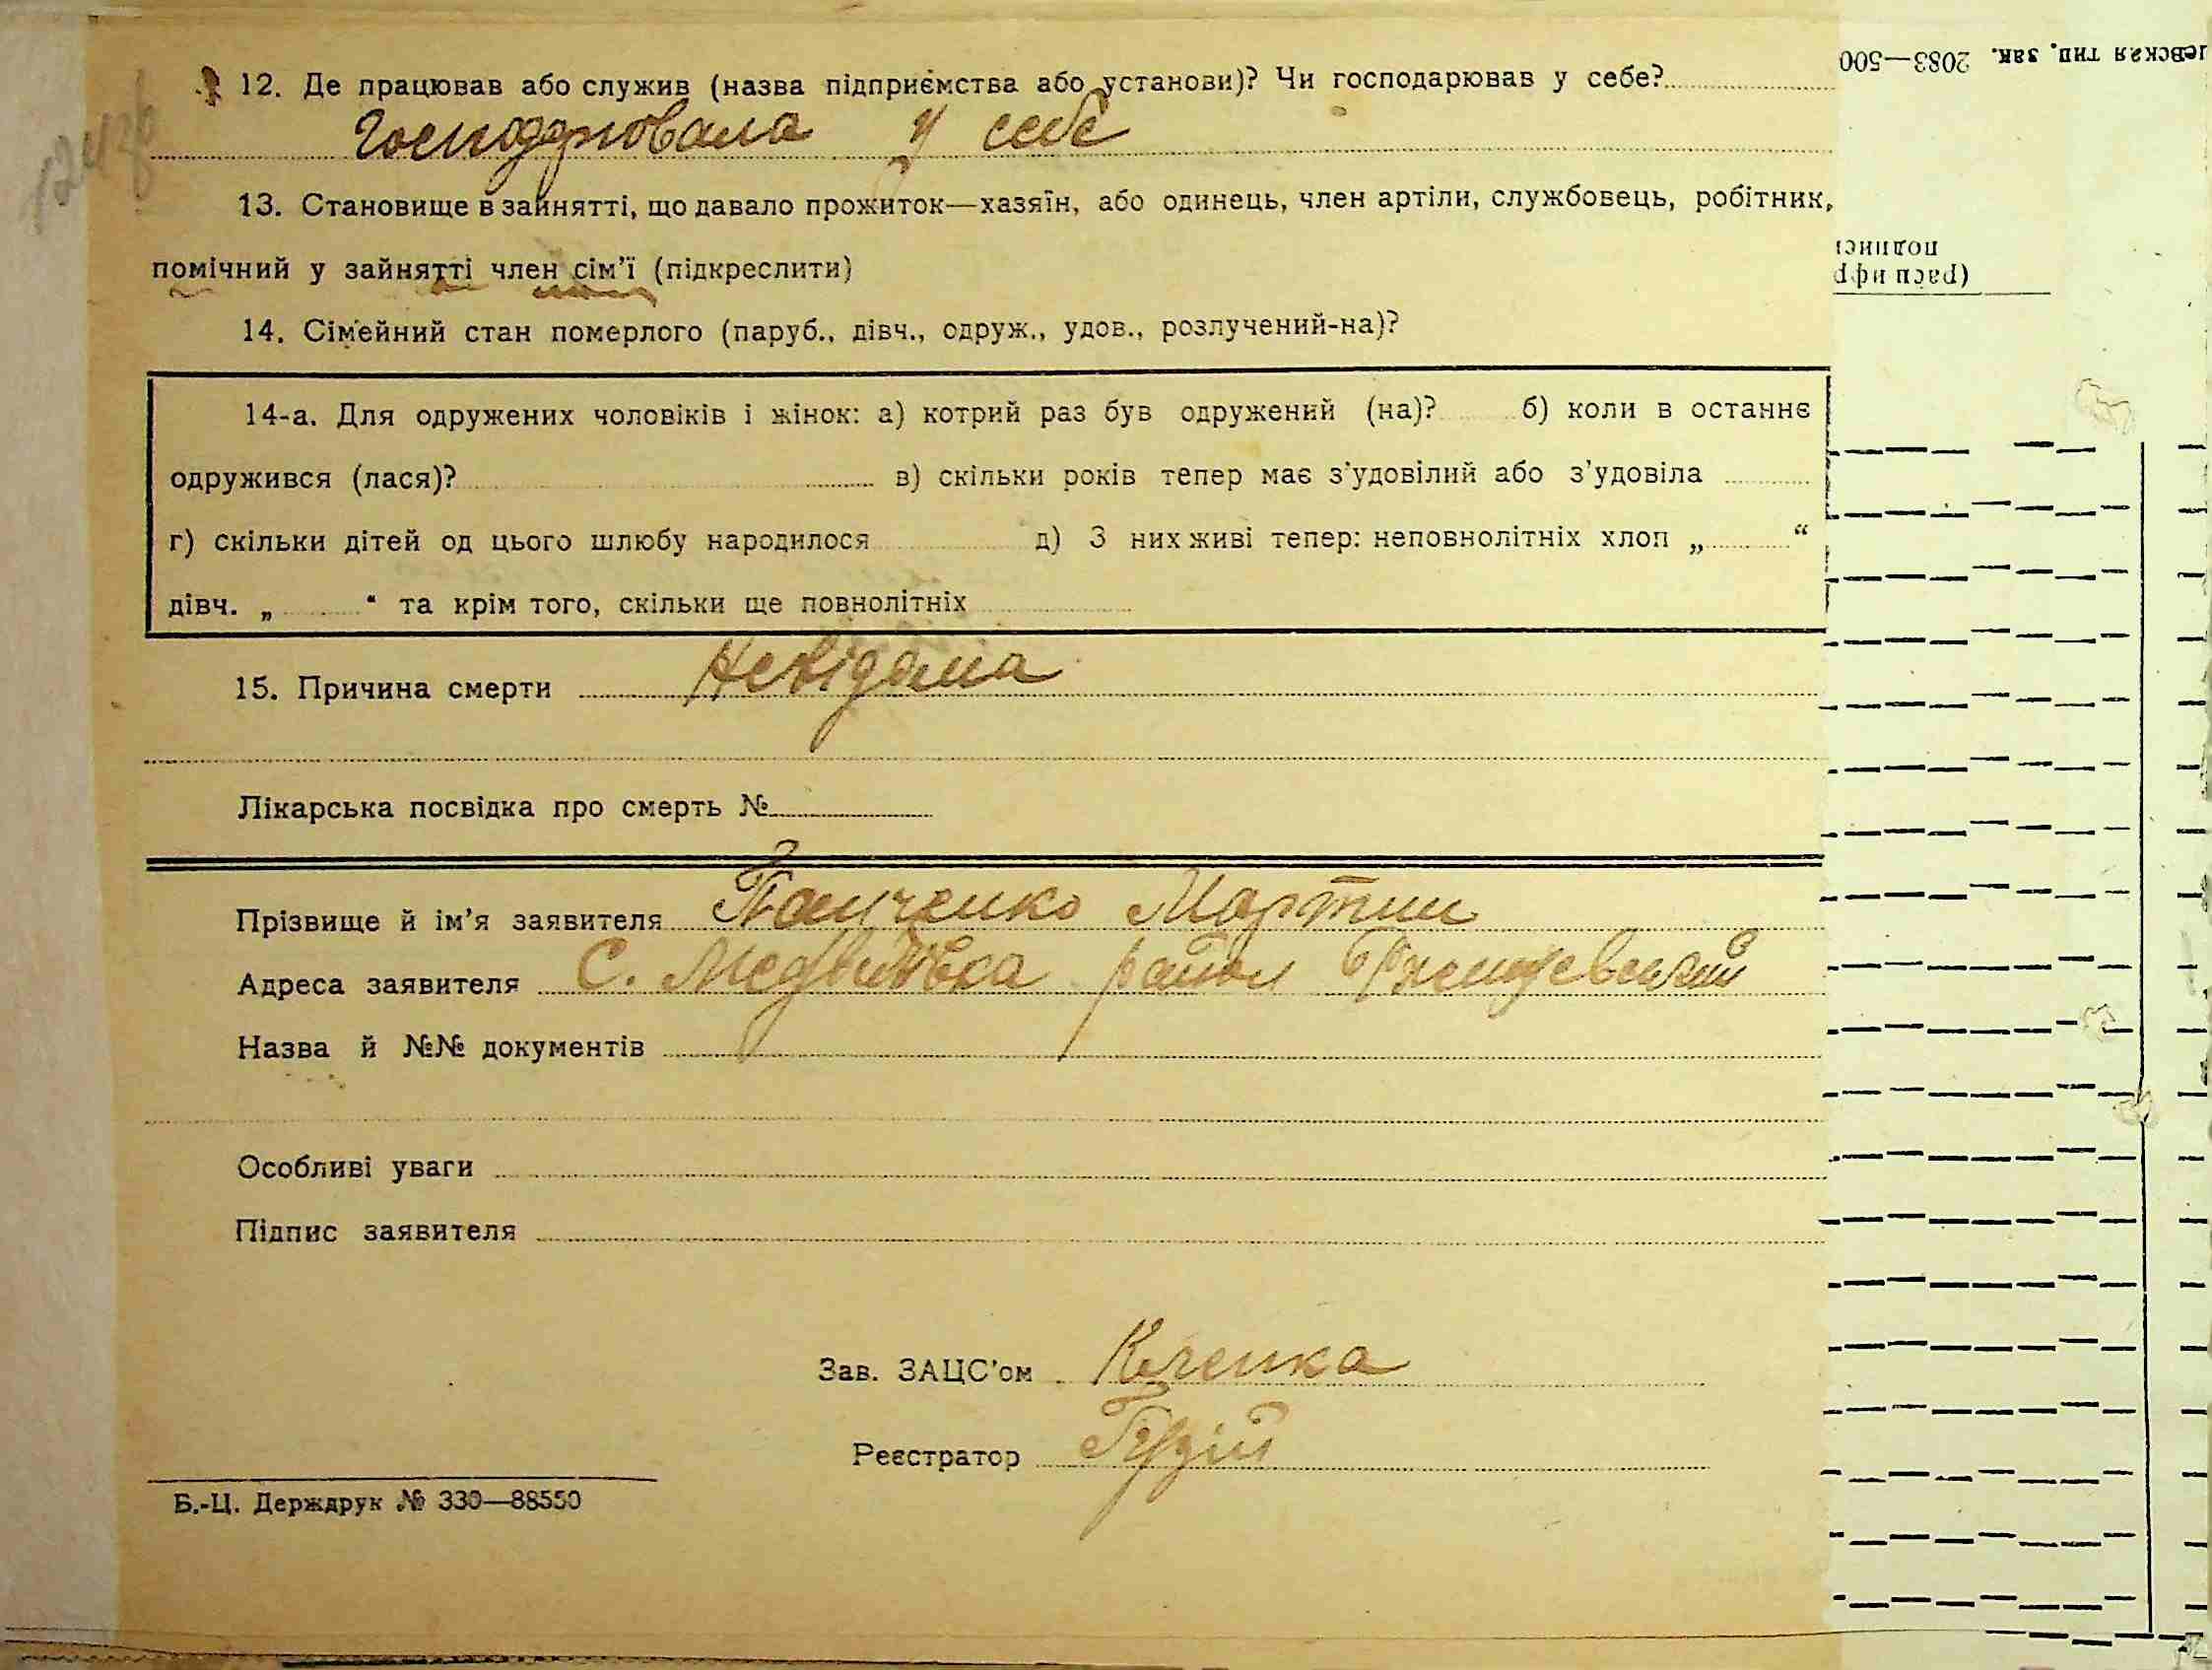 12. Де працював або служив (назва підприємства або установи)? Чи господарював у себе?
Господарювала у себе
13. Становище в зайнятті, що давало прожиток—хазяїн, або одинець, член артіли, службовець, робітник,
помічний у зайнятті член сім'ї (підкреслити)
14. Сімейний стан померлого (паруб., дівч., одруж., удов., розлучений-на)?
14-а. Для одружених чоловіків і жінок: а) котрий раз був одружений (на)? б) коли в останнє
одружився (лася)? в) скільки років тепер має з'удовілий або з'удовіла
г) скільки дітей од цього шлюбу народилося д) З них живі тепер: неповнолітніх хлоп „ “
дівч. „ “ та крім того, скільки ще повнолітніх
15. Причина смерти Невідома
Лікарська посвідка про смерть №
Прізвище й ім'я заявителя Панченко Мартин
Адреса заявителя С. Медвидовка район
Назва й №№ документів
Особливі уваги
Підпис заявителя
Зав. ЗАЦС'ом
Реєстратор
Б.-Ц. Держдрук № 330—88550
евская тип. зак. 2083—500
(расшифр
подписи